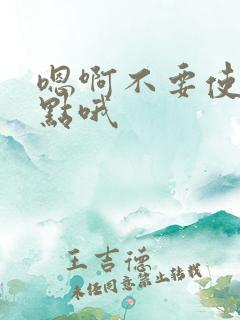 嗯啊不要使
點哦
王吉德
未经同意禁止转载